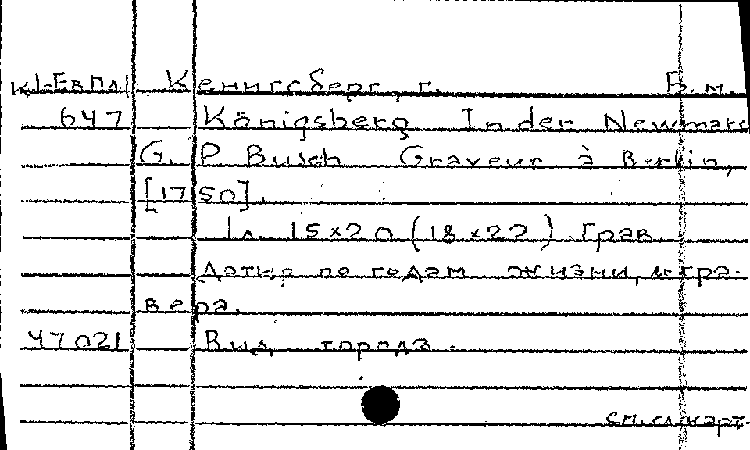 К1-Евпл Кенигсберг, г. Б.м.
647 Königsberg In der Newmark
G. P Busch Graveur à Berlin,
[1750].
1л. 15x20 (18x22) Грав.
Датир. по годам жизни гра-
вера.
47021 Вид города.
см. сл. карт.